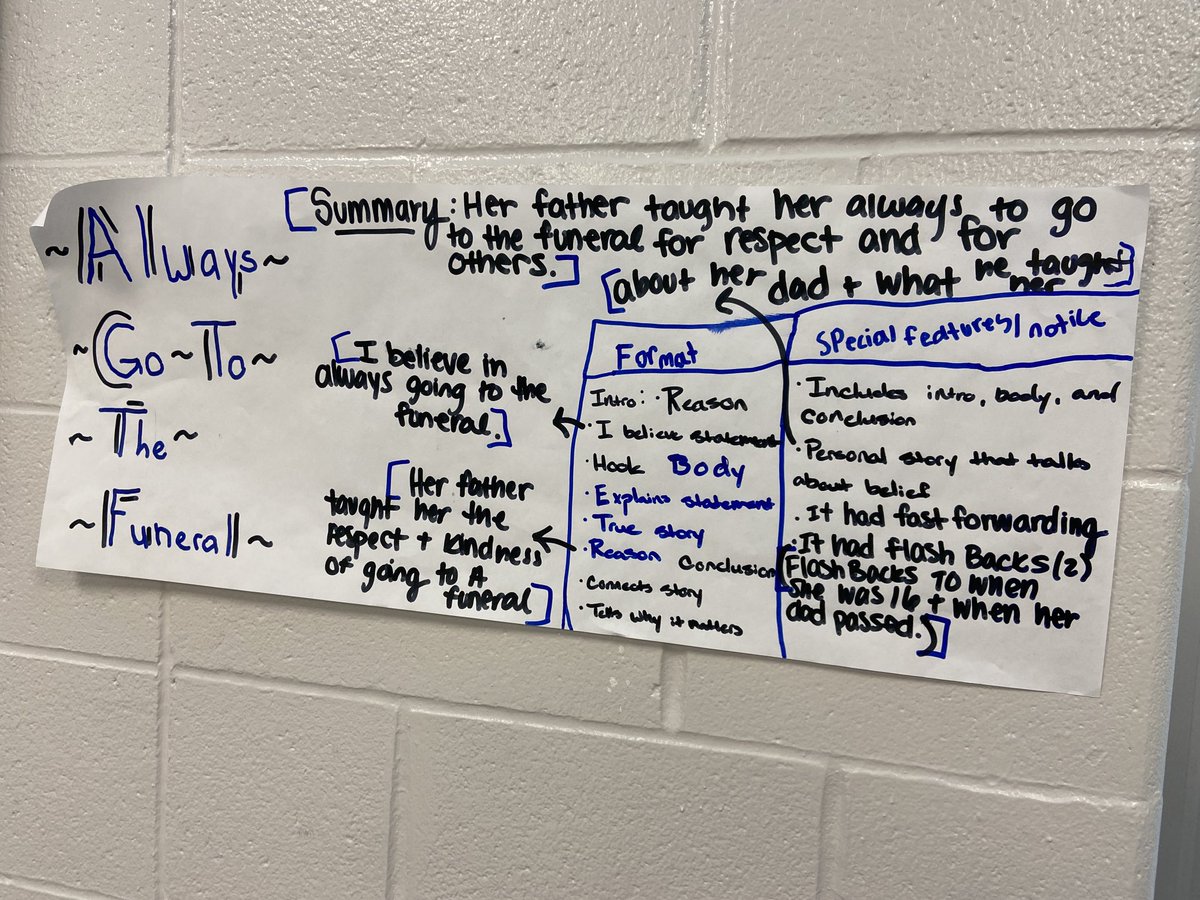 ~Always~
~Go~To~
~The~
~Funeral~
[Summary: Her father taught her always to go
to the funeral for respect and for
others.]
[about her dad + what he taught
her]
[I believe in
always going to the
funeral.]
[Her father
taught her the
respect + kindness
of going to A
funeral]
Format
Intro: · Reason
· I believe statement
· Hook Body
· Explains statement
· True story
· Reason Conclusion
· Connects story
· Tells why it matters
Special features/notice
· Includes intro, body, and
conclusion
· Personal story that talks
about belief
· It had fast forwarding
· It had flash Backs (2)
[(Flash Backs TO when
she was 16 + when her
dad passed.)]